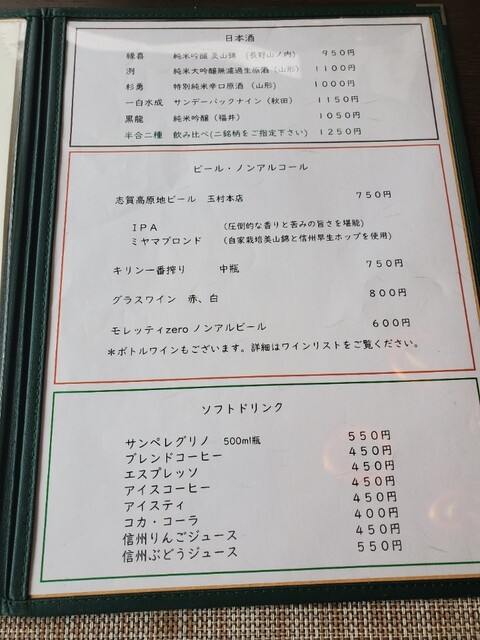 日本酒
縁喜 純米吟醸 美山錦 (長野山ノ内) 950円
洌 純米大吟醸無濾過生原酒 (山形) 1100円
杉勇 特別純米辛口原酒 (山形) 1000円
一白水成 サンデーバックナイン (秋田) 1150円
黒龍 純米吟醸 (福井) 1050円
半合二種 飲み比べ(二銘柄をご指定下さい) 1250円
ビール・ノンアルコール
志賀高原地ビール 玉村本店 750円
IPA (圧倒的な香りと苦みの旨さを堪能)
ミヤマブロンド (自家栽培美山錦と信州早生ホップを使用)
キリン一番搾り 中瓶 750円
グラスワイン 赤、白 800円
モレッティzero ノンアルビール 600円
*ボトルワインもございます。詳細はワインリストをご覧ください。
ソフトドリンク
サンペレグリノ 500ml瓶 550円
ブレンドコーヒー 450円
エスプレッソ 450円
アイスコーヒー 450円
アイスティ 450円
コカ・コーラ 400円
信州りんごジュース 450円
信州ぶどうジュース 550円